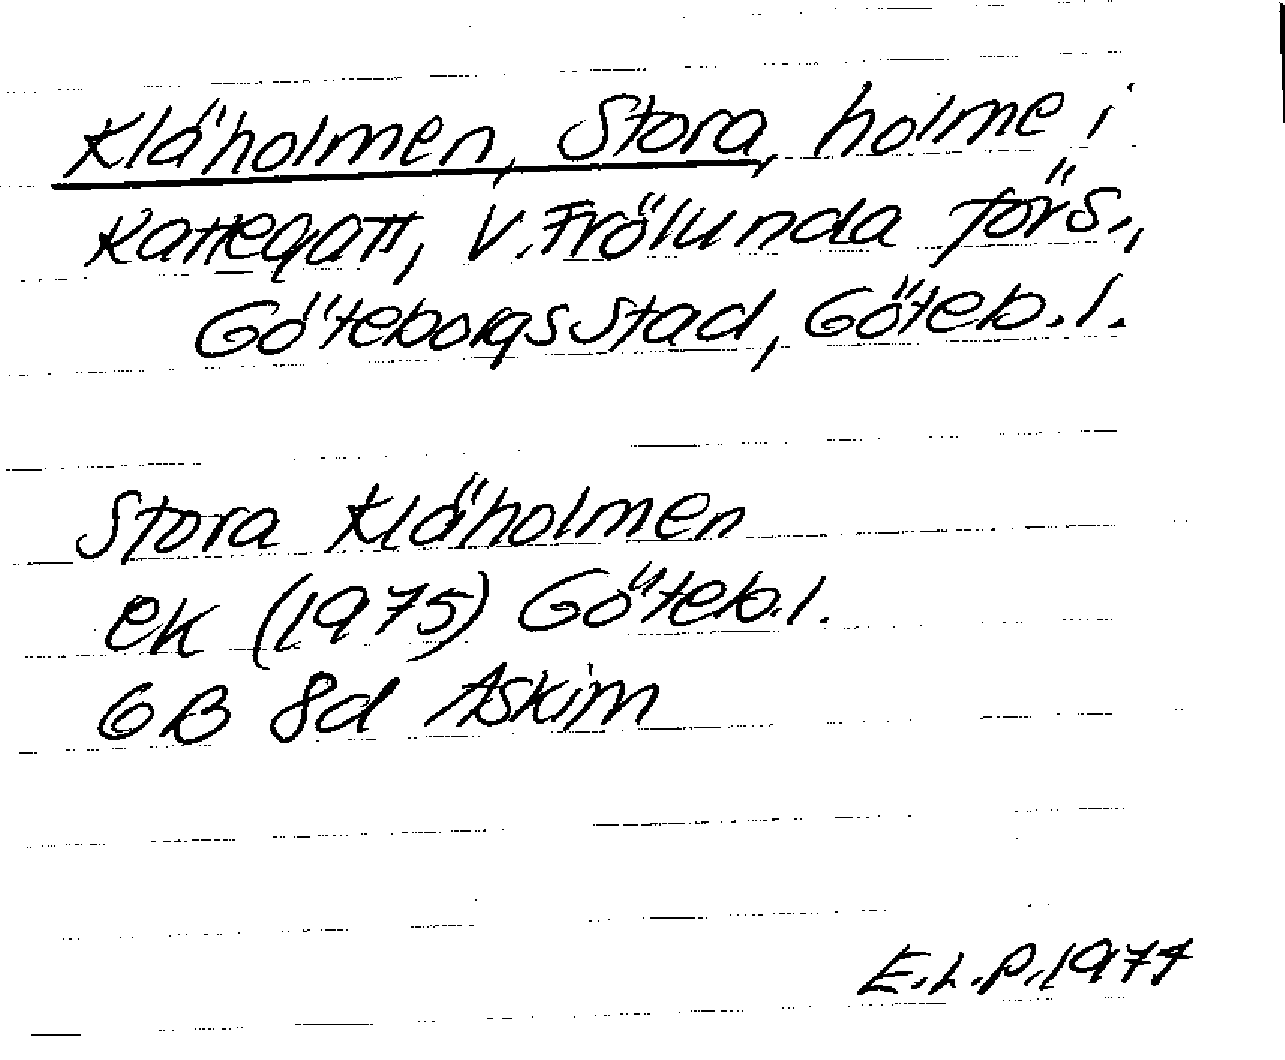 Kläholmen, Stora, holme i
Kattegatt, V. Frölunda förs.,
Göteborgs stad, Göteb. l.
Stora Kläholmen
ek (1975) Göteb. l.
GB 8d Askim
E.L.P. 1977